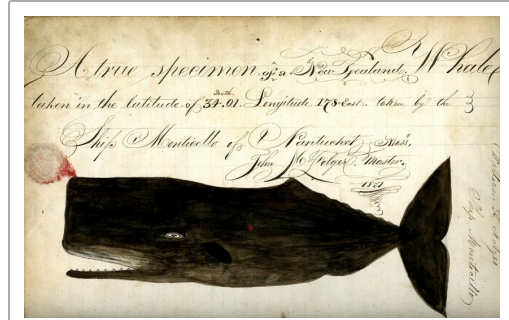 A true specimen of a New Zealand Whale
South
taken in the latitude of 34.01. Longitude 178 East. taken by the
Ship Monticello of Nantucket Mass.
John Folger. Master.
1851
Ship Monticello